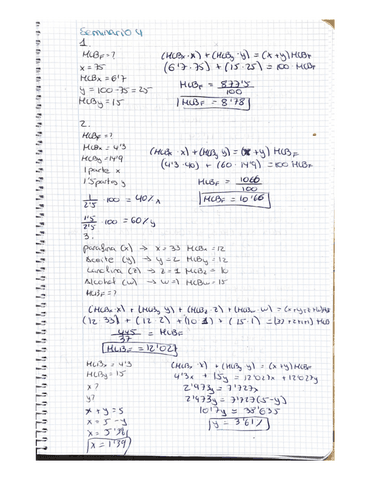 Seminario 4
1.
HLB_F = ?
x = 75
HLBx = 6'7
y = 100 - 75 = 25
HLBy = 15
(HLBx · x) + (HLBy · y) = (x + y) HLB_F
(6'7 · 75) + (15 · 25) = 100 HLB_F
HLB_F = 877'5 / 100
HLB_F = 8'78
2.
HLB_F = ?
HLBx = 4'3
HLBy = 14'9
1 parte x
1'5 partes y
1/2'5 · 100 = 40% x
1'5/2'5 · 100 = 60% y
(HLBx · x) + (HLBy y) = (x + y) HLB_F
(4'3 · 40) + (60 · 14'9) = 100 HLB_F
HLB_F = 1066 / 100
HLB_F = 10'66
3.
parafina (x) → x = 33 HLBx = 12
Aceite (y) → y = 2 HLBy = 12
Lanolina (z) → z = 1 HLBz = 10
Alcohol (w) → w = 1 HLBw = 15
HLB_F = ?
(HLBx · x) + (HLBy y) + (HLBz · z) + (HLBw · w) = (x+y+z+w) HLB
(12 · 33) + (12 · 2) + (10 · 1) + (15 · 1) =
445 / 37 = HLB_F
HLB_F = 12'027
HLBx = 4'3
HLBy = 15
x?
y?
x + y = 5
x = 5 - y
x = 5 -
x = 1'39
(HLBx · x) + (HLBy y) = (x + y) HLB_F
4'3x + 15y = 12'027x + 12'027y
2'973y = 7'727x
2'973y = 7'727(5 - y)
10'7y = 38'635
y = 3'61%